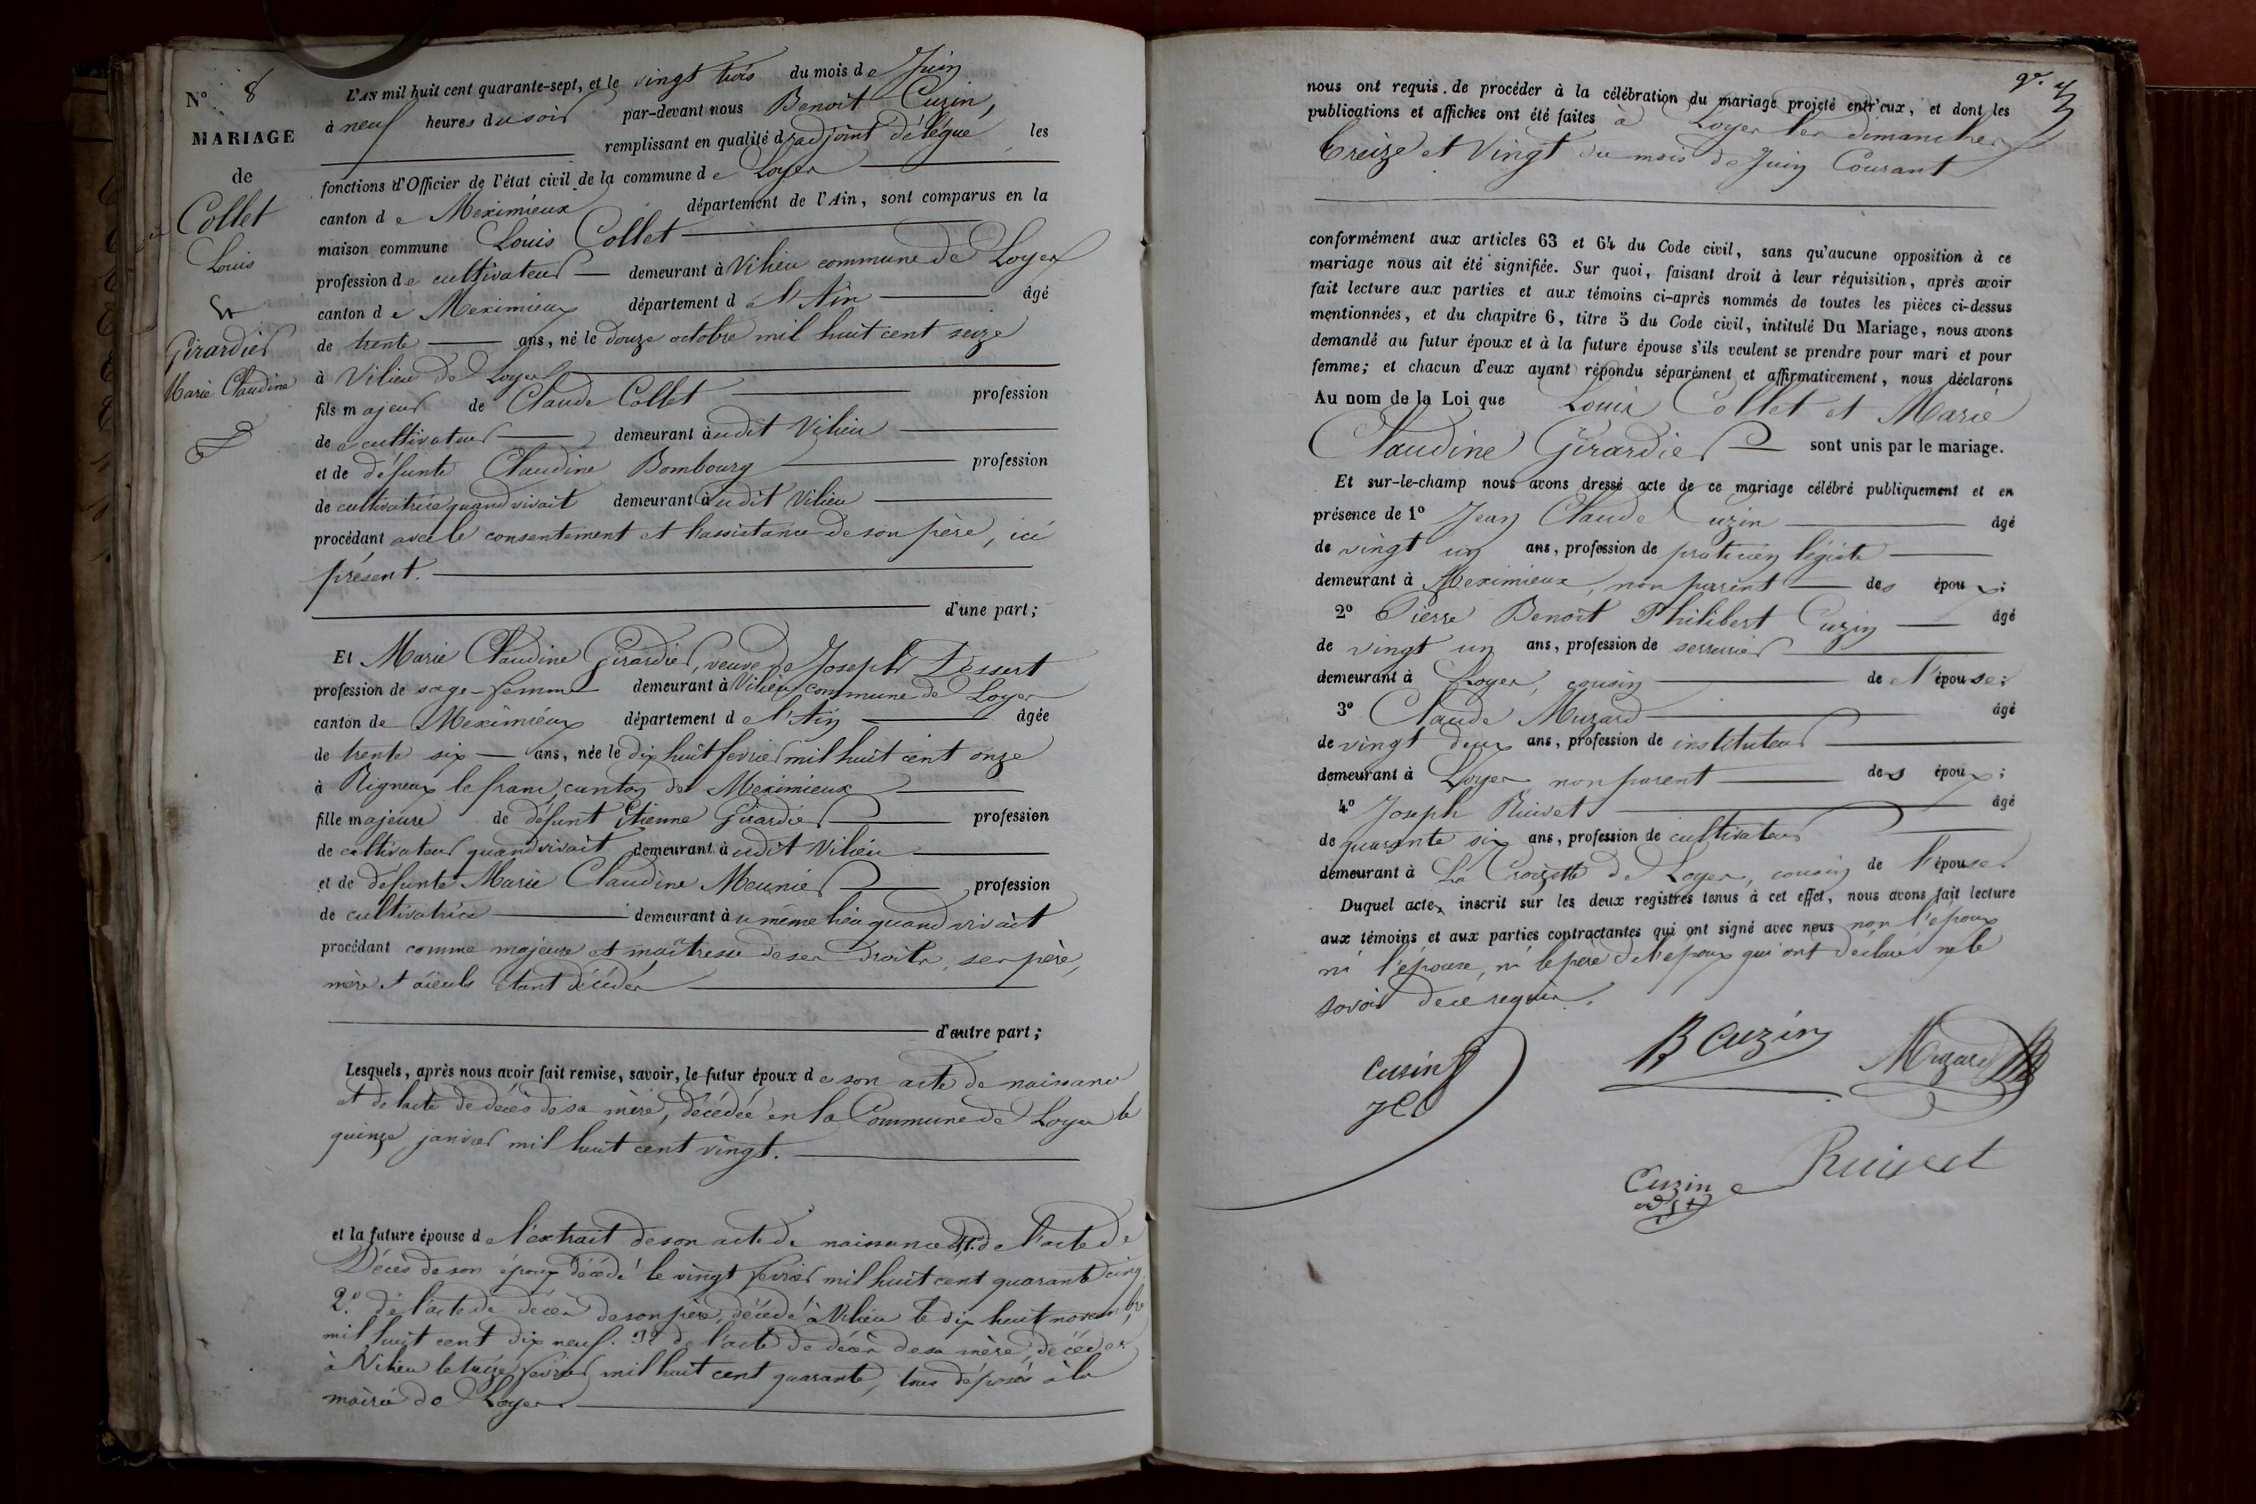 N° 8
MARIAGE
de
Collet
Louis
et
Girardier
Marie Claudine
L'AN mil huit cent quarante-sept, et le vingt trois du mois de Juin
à neuf heures du soir par-devant nous Benoit Cuzin,
remplissant en qualité d'adjoint délégué, les
fonctions d'Officier de l'état civil de la commune de Loyes
canton de Meximieux département de l'Ain, sont comparus en la
maison commune Louis Collet
profession de cultivateur demeurant à Vilieu commune de Loyes
canton de Meximieux département de l'Ain âgé
de trente ans, né le douze octobre mil huit cent seize
à Vilieu de Loyes
fils majeur de Claude Collet profession
de cultivateur demeurant audit Vilieu
et de défunte Claudine Bombourg profession
de cultivatrice quand vivait demeurant audit Vilieu
procédant avec le consentement et l'assistance de son père, ici
présent.
d'une part;
Et Marie Claudine Girardier, veuve de Joseph Dessert
profession de sage-femme demeurant à Vilieu commune de Loyes
canton de Meximieux département de l'Ain âgée
de trente six ans, née le dix huit fevrier mil huit cent onze
à Rigneux le franc, canton de Meximieux
fille majeure de défunt Etienne Girardier profession
de cultivateur quand vivait demeurant audit Vilieu
et de défunte Marie Claudine Meunier profession
de cultivatrice demeurant au même lieu quand vivait
procédant comme majeure et maîtresse de ses droits, ses père,
mère et aïeuls étant décédés
d'autre part;
Lesquels, après nous avoir fait remise, savoir, le futur époux de son acte de naissance
et de l'acte de décès de sa mère, décédée en la Commune de Loyes le
quinze janvier mil huit cent vingt.
et la future épouse de l'extrait de son acte de naissance de l'acte de
Décès de son époux décédé le vingt fevrier mil huit cent quarante cinq
2.° de l'acte de décès de son père, décédé à Vilieu le dix huit novembre
mil huit cent dix neuf. 3° de l'acte de décès de sa mère, décédée
à Vilieu le treize fevrier mil huit cent quarante, tous déposés à la
mairie de Loyes
nous ont requis de procéder à la célébration du mariage projeté entr'eux, et dont les
publications et affiches ont été faites à Loyes les dimanches
treize et Vingt du mois de Juin Courant
conformément aux articles 63 et 64 du Code civil, sans qu'aucune opposition à ce
mariage nous ait été signifiée. Sur quoi, faisant droit à leur réquisition, après avoir
fait lecture aux parties et aux témoins ci-après nommés de toutes les pièces ci-dessus
mentionnées, et du chapitre 6, titre 5 du Code civil, intitulé Du Mariage, nous avons
demandé au futur époux et à la future épouse s'ils veulent se prendre pour mari et pour
femme; et chacun d'eux ayant répondu séparément et affirmativement, nous déclarons
Au nom de la Loi que Louis Collet et Marie
Claudine Girardier sont unis par le mariage.
Et sur-le-champ nous avons dressé acte de ce mariage célébré publiquement et en
présence de 1° Jean Claude Cuzin âgé
de vingt un ans, profession de praticien légiste
demeurant à Meximieux, non parent des époux;
2° Pierre Benoît Philibert Cuzin âgé
de vingt un ans, profession de serrurier
demeurant à Loyes, cousin de l'épouse;
3° Claude Muzard âgé
de vingt deux ans, profession de instituteur
demeurant à Loyes non parent des époux;
4° Joseph Ruivet âgé
de quarante six ans, profession de cultivateur
demeurant à La Croizette de Loyes, cousin de l'épouse
Duquel acte, inscrit sur les deux registres tenus à cet effet, nous avons fait lecture
aux témoins et aux parties contractantes qui ont signé avec nous non l'époux
ni l'épouse, ni le père de l'époux qui ont déclaré ne le
savoir de ce requis.
Cusin
JC
B Cuzin
Muzard
Cuzin
adjt
Ruivet